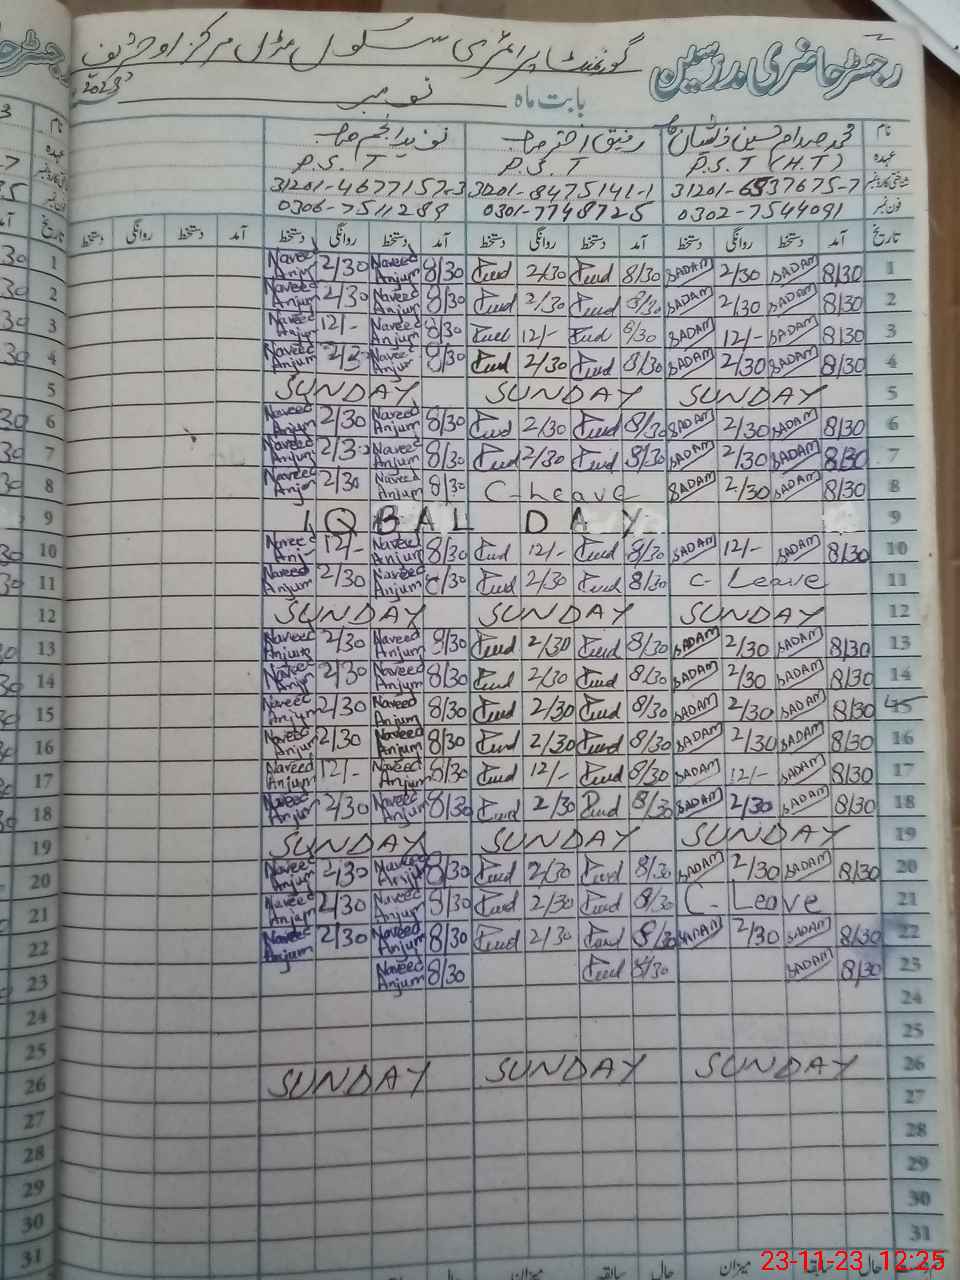 رجسٹر حاضری مدرسین
گورنمنٹ پرائمری سکول ماڈل مرکز اوچشریف
بابت ماہ نومبر 2023
نام محمد صدام حسین رفیق اختر صاحب نوید انجم صاحب
عہدہ P.S.T (H.T) P.S.T P.S.T
31201-6537675-7 31201-8475141-1 31201-4677157-3
فون نمبر 0302-7544091 0301-7748725 0306-7511289
تاریخ آمد دستخط روانگی دستخط آمد دستخط روانگی دستخط آمد دستخط روانگی دستخط آمد دستخط روانگی دستخط
1 Naveed Anjum 2/30 Naveed Anjum 8/30 2/30 8/30 SADAM 2/30 SADAM 8/30 1
2 Naveed Anjum 2/30 Naveed Anjum 8/30 2/30 8/30 SADAM 2/30 SADAM 8/30 2
3 Naveed Anjum 12/- Naveed Anjum 8/30 12/- 8/30 SADAM 12/- SADAM 8/30 3
4 Naveed Anjum 2/30 Naveed Anjum 8/30 2/30 8/30 SADAM 2/30 SADAM 8/30 4
5 SUNDAY SUNDAY SUNDAY 5
6 Naveed Anjum 2/30 Naveed Anjum 8/30 2/30 8/30 SADAM 2/30 SADAM 8/30 6
7 Naveed Anjum 2/30 Naveed Anjum 8/30 2/30 8/30 SADAM 2/30 SADAM 8/30 7
8 Naveed Anjum 2/30 Naveed Anjum 8/30 C-Leave SADAM 2/30 SADAM 8/30 8
9 IQBAL DAY 9
10 Naveed Anj 12/- Naveed Anjum 8/30 12/- 8/30 SADAM 12/- SADAM 8/30 10
11 Naveed Anjum 2/30 Naveed Anjum 8/30 2/30 8/30 C-Leave 11
12 SUNDAY SUNDAY SUNDAY 12
13 Naveed Anjum 2/30 Naveed Anjum 8/30 2/30 8/30 SADAM 2/30 SADAM 8/30 13
14 Naveed Anjum 2/30 Naveed Anjum 8/30 2/30 8/30 SADAM 2/30 SADAM 8/30 14
15 Naveed Anjum 2/30 Naveed Anjum 8/30 2/30 8/30 SADAM 2/30 SADAM 8/30 15
16 Naveed Anjum 2/30 Naveed Anjum 8/30 2/30 8/30 SADAM 2/30 SADAM 8/30 16
17 Naveed Anjum 12/- Naveed Anjum 8/30 12/- 8/30 SADAM 12/- SADAM 8/30 17
18 Naveed Anjum 2/30 Naveed Anjum 8/30 2/30 8/30 SADAM 2/30 SADAM 8/30 18
19 SUNDAY SUNDAY SUNDAY 19
20 Naveed Anjum 2/30 Naveed Anjum 8/30 2/30 8/30 SADAM 2/30 SADAM 8/30 20
21 Naveed Anjum 2/30 Naveed Anjum 8/30 2/30 8/30 C-Leave 21
22 Naveed Anjum 2/30 Naveed Anjum 8/30 2/30 8/30 SADAM 2/30 SADAM 8/30 22
23 Naveed Anjum 8/30 8/30 SADAM 8/30 23
24 24
25 25
26 SUNDAY SUNDAY SUNDAY 26
27 27
28 28
29 29
30 30
31 31
میزان سابقہ حال میزان سابقہ حال
23-11-23 12:25